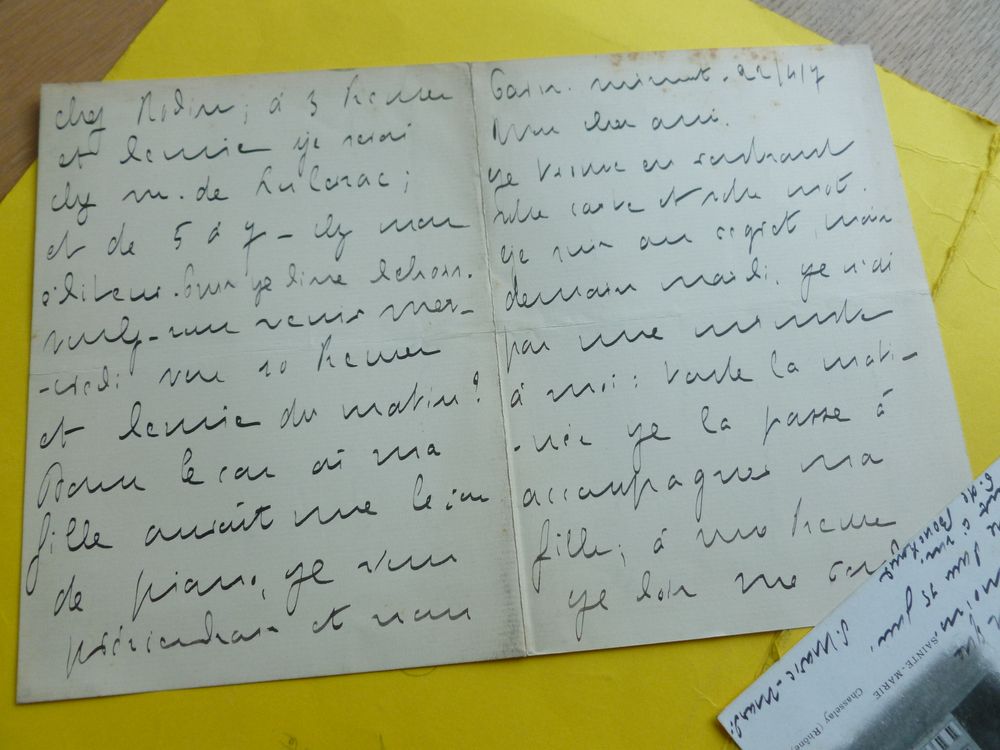 Paris. minuit. 22/4/7
Mon cher ami.
je trouve en rentrant
votre carte et votre mot.
je suis au regret, mais
demain mardi, je n'ai
pas une minute
à moi : toute la mati-
-née je la passe à
accompagner ma
fille ; à une heure
je dois
chez Rodin ; à 3 heures
et demie je serai
chez M. de
et de 5 à 7 - chez mon
éditeur. Puis je dîne dehors.
voulez-vous venir mer-
-credi vers 10 heures
et demie du matin ?
Dans le cas où ma
fille aurait une leçon
de piano, je vous
préviendrais et nous
SAINTE-MARIE
Chasselay (Rhône)